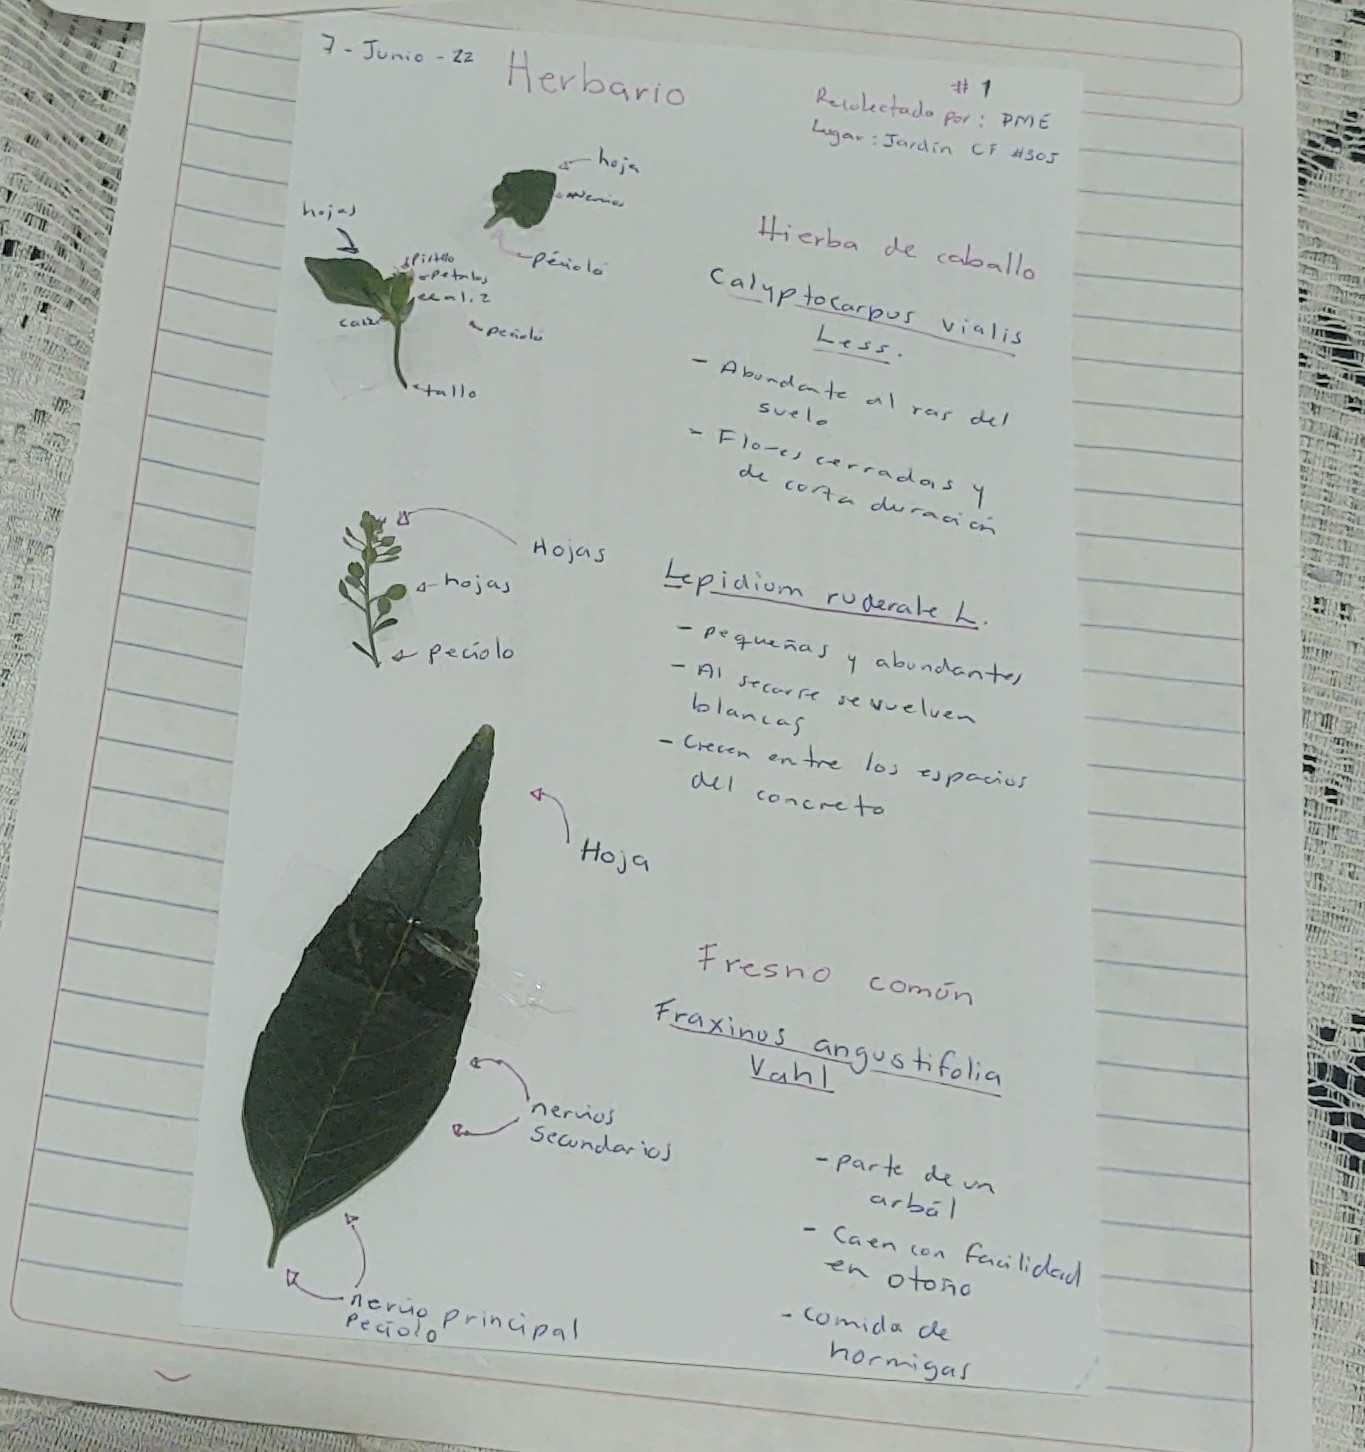 7 - Junio - 22
Herbario
# 1
Recolectado por: PME
Lugar: Jardín CF #305
hoja
nervios
péciolo
hojas
pistilo
petalos
caliz
peciolo
tallo
Hierba de caballo
Calyptocarpus vialis
Less.
- Abundante al ras del
suelo
- Flores cerradas y
de corta duración
Hojas
hojas
peciolo
Lepidium ruderale L.
- pequeñas y abundantes
- Al secarse se vuelven
blancas
- Crecen entre los espacios
del concreto
Hoja
nervios
secundarios
nervio principal
peciolo
Fresno común
Fraxinus angustifolia
Vahl
- parte de un
arból
- Caen con facilidad
en otoño
- comida de
hormigas